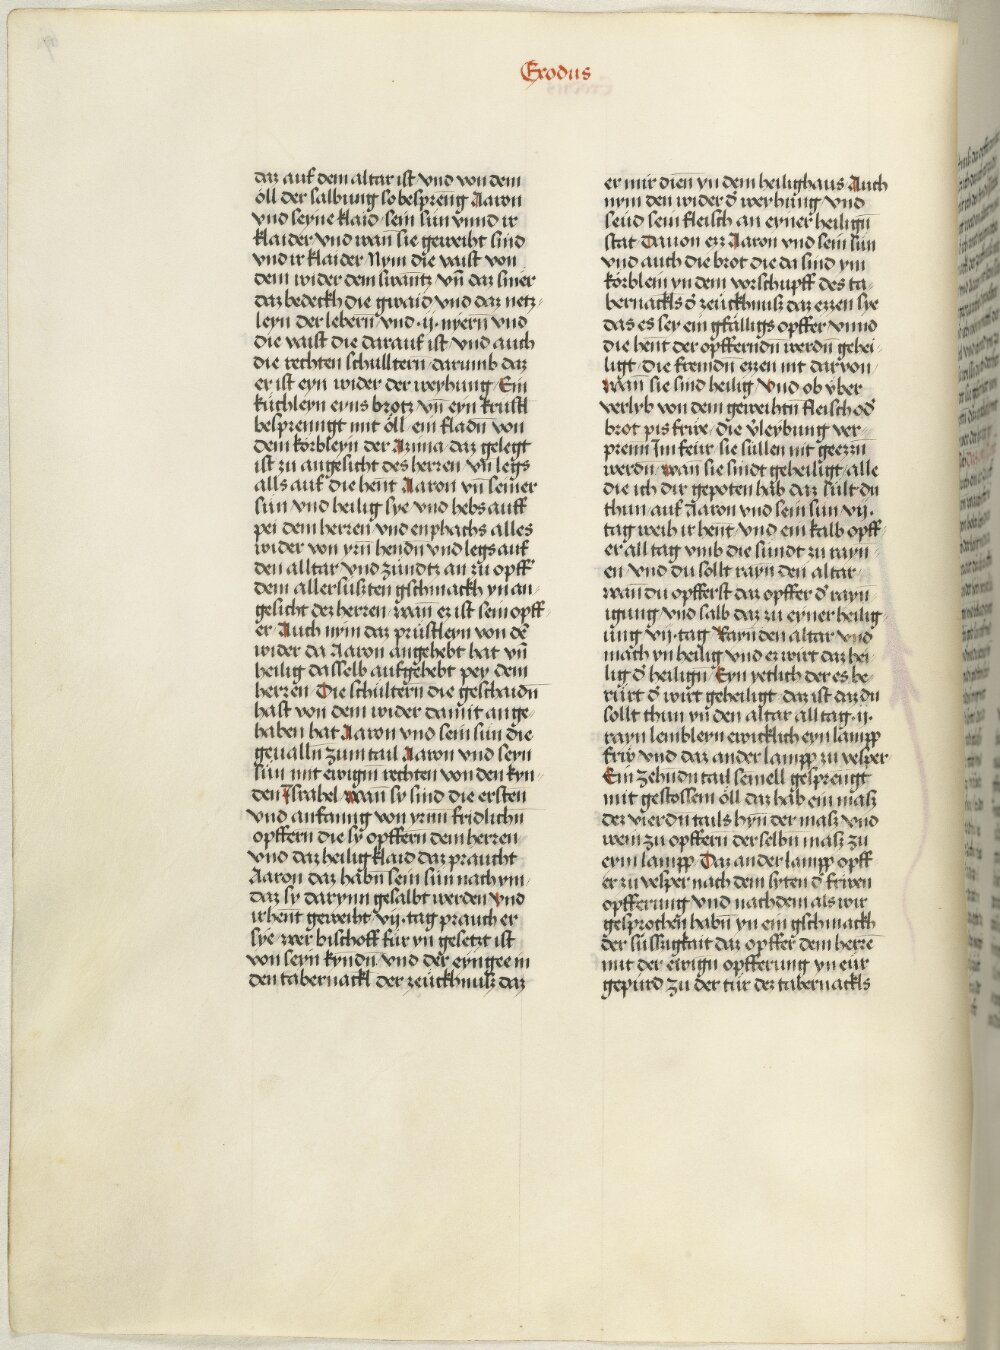 Exodus
daz auf dem altar ist vnd von dem
öll der salbung so bespreng Aaron
vnd seyne klaid sein sün vnnd ir
klaider vnd wan̄ sie geweiht sind
vnd ir klaider Nym die vaist von
dem wider dem swantz vn̄ daz smer
daz bedeckh die gwaid vnd daz netz⸗
leyn der lebern vnd ·ij· nyern vnd
die vaist die darauf ist vnd auch
die rechten schulltern darumb daz
er ist eyn wider der weyhung Ein
küchleyn eyns brotz vn̄ eyn krüstl
besprenngt mit öll ein fladn̄ von
dem korbleyn der Azima daz gelegt
ist zu angesicht des herren vn̄ legs
alls auf die hent Aaron vn̄ seiner
sün vnd heilig sye vnd hebs auff
pei dem herren vnd enphachs alles
wider von yrn̄ hendn̄ vnd legs auf
den alltar vnd zündtz an zu opff⸗
dem allersüßten gschmackh yn an⸗
gesicht dez herren wan̄ er ist sein opff⸗
er Auch nym daz prüstleyn von dē
wider da Aaron angehebt hat vn̄
heilig dasselb aufgehebt pey dem
herren Die schültern die geschaidn̄
hast von dem wider damit ange⸗
haben hat Aaron vnd sein sün die
geualln̄ zum tail Aaron vnd seyn
sün mit ewigm rechten von den kyn⸗
den Israhel wan̄ sy sind die ersten
vnd anfanng von yrnn fridlichn̄
opffern die sy opffern dem herren
vnd daz heilig klaid daz praucht
Aaron daz habn̄ sein sün nach ym
daz sy darynn gesalbt werden vnd
ir hent geweiht vij· tag prauch er
sye wer bischoff für yn gesetzt ist
von seyn kyndn̄ vnd der eyngee in
den tabernackl der zeückhnuß daz
er mir dien yn dem heilighaus Auch
nym den wider d̄ weyhung vnd
seud sein fleisch an eyner heilign̄
stat Dauon ezz Aaron vnd sein sün
vnd auch die brot die da sind ym
körblein yn dem vorschupff des ta⸗
bernackls d̄ zeückhnuß daz ezzen sye
das es sey ein gfälligs opffer vnnd
die hent der opfferndn̄ werdn̄ gehei⸗
ligt die fremdn̄ ezzen nit daruon
wan̄ sie sind heilig vnd ob vber
verlyb von dem geweihtn̄ fleisch od̄
brot pis frwe die v̄leybung ver⸗
prenn Im feür sie süllen nit geezzn̄
werdn̄ wan̄ sie sindt geheiligt alle
die ich dir gepoten hab daz sült du
thun auf Aaron vnd sein sün vij·
tag weih ir hent vnd ein kalb opff⸗
er all tag vmb die sündt zu rayn⸗
en vnd du sollt rayn̄ den altar
wan̄ du opfferst daz opffer d̄ rayn⸗
igung vnd salb daz zu eyner heilig⸗
ung vij· tag Rayn den altar vnd
mach yn heilig vnd er wirt daz hei⸗
lig d̄ heilign̄ Eyn yetlich der es be⸗
rürt d̄ wirt geheiligt daz ist daz du
sollt thun yn̄ den altar all tag ·ij·
rayn lembleyn ewicklich eyn lampp
frw vnd daz ander lampp zu vesper
Ein zehndn̄ tail semell gesprengt
mit gestossem öll daz hab ein maß
dez vierdn̄ tails hyn̄ der maß vnd
wein zu opffern derselbn̄ maß zu
eym lampp Daz ander lampp opff⸗
er zu vesper nach dem syten d̄ frwen
opfferung vnd nachdem als wir
gesprochen habn̄ yn ein gschmackh
der süssigkait daz opffer dem herrē
mit der ewign̄ opfferung yn eür
gepürd zu der tür dez tabernackls